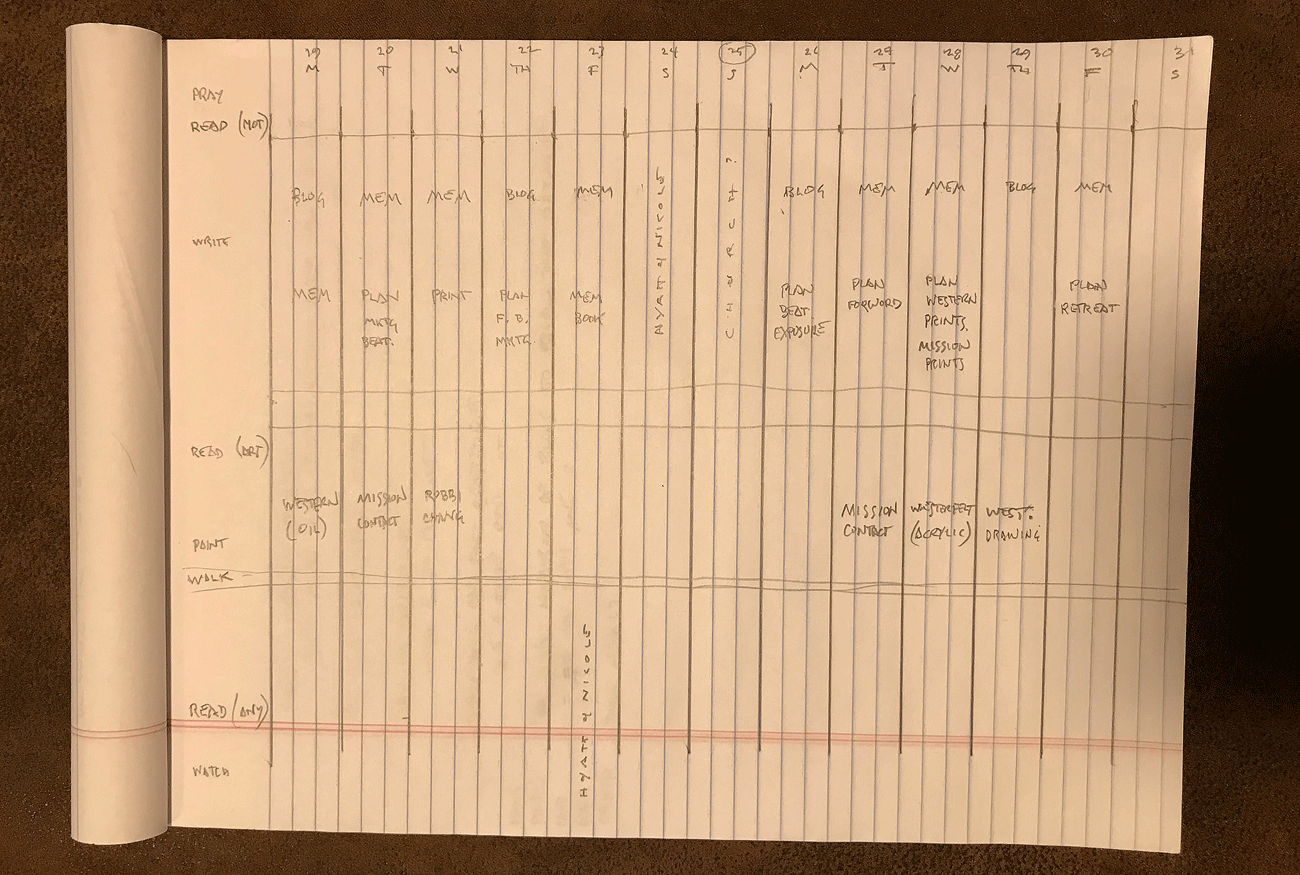 19 20 21 22 23 24 25 26 27 28 29 30 31
M T W TH F S S M T W TH F S
PRAY
READ (MOT)
BLOG MEM MEM BLOG MEM BLOG MEM MEM BLOG MEM
WRITE
HYATT & NICOLE
CHURCH?
MEM PLAN PRINT PLAN MEM PLAN PLAN PLAN PLAN
MKTG F. B. BOOK BEAT FORWORD WESTERN RETREAT
BEAT. MKTG. EXPOSURE PRINTS.
MISSION
PRINTS
READ (ART)
WESTERN MISSION ROBBI MISSION WEST.
(OIL) CONTACT CHUNG CONTACT (ACRYLIC) DRAWING
PAINT
WALK
HYATT & NICOLE
READ (ANY)
WATCH